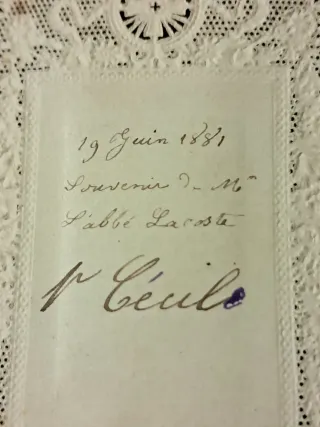 19 Juin 1881
Souvenir de Mr
L'abbé Lacoste
Pr Cécile